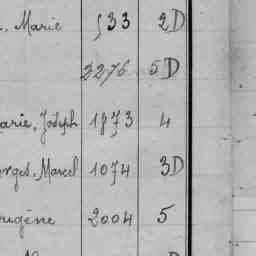 Marie 533 2D
2276 5D
arie, Joseph 1873 4
orges, Marcel 1074 3D
ugène 2004 5